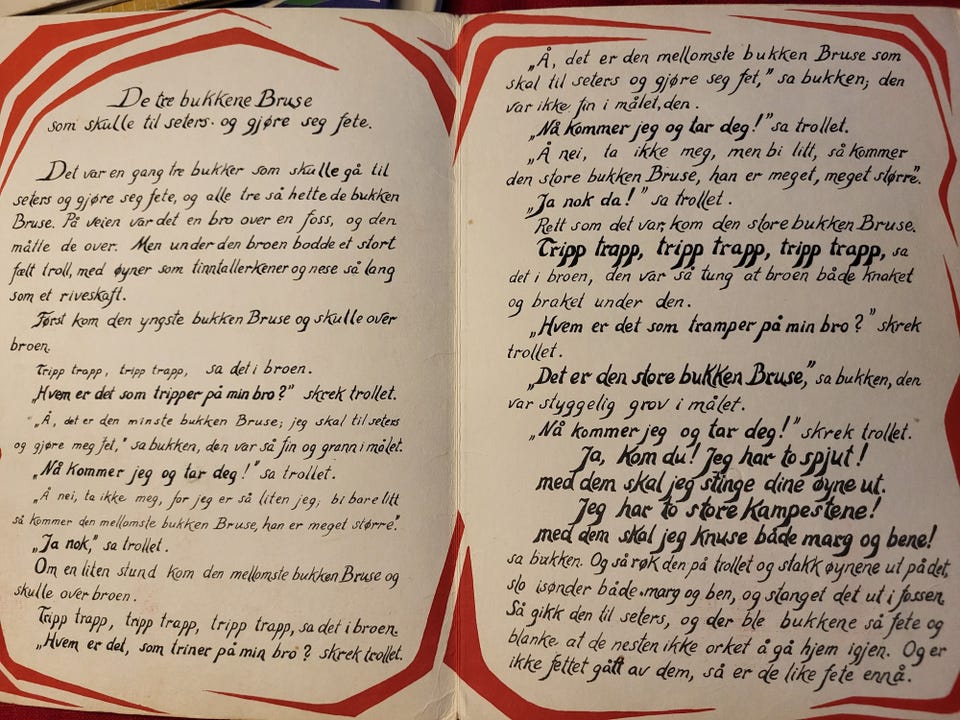 De tre bukkene Bruse
som skulle til seters og gjøre seg fete.
Det var en gang tre bukker som skulle gå til
seters og gjøre seg fete, og alle tre så hette de bukken
Bruse. På veien var det en bro over en foss, og den
måtte de over. Men under den broen bodde et stort
fælt troll, med øyner som tinntallerkener og nese så lang
som et riveskaft.
Først kom den yngste bukken Bruse og skulle over
broen.
Tripp trapp, tripp trapp, sa det i broen.
„Hvem er det som tripper på min bro?” skrek trollet.
„Å, det er den minste bukken Bruse; jeg skal til seters
og gjøre meg fet,” sa bukken, den var så fin og grann i målet.
„Nå kommer jeg og tar deg!” sa trollet.
„Å nei, ta ikke meg, for jeg er så liten jeg; bi bare litt
så kommer den mellomste bukken Bruse, han er meget større.”
„Ja nok,” sa trollet.
Om en liten stund kom den mellomste bukken Bruse og
skulle over broen.
Tripp trapp, tripp trapp, tripp trapp, sa det i broen.
„Hvem er det, som triner på min bro? skrek trollet.
„Å, det er den mellomste bukken Bruse som
skal til seters og gjøre seg fet,” sa bukken; den
var ikke fin i målet, den.
„Nå kommer jeg og tar deg!” sa trollet.
„Å nei, ta ikke meg, men bi litt, så kommer
den store bukken Bruse, han er meget, meget større”.
„Ja nok da!” sa trollet.
Rett som det var, kom den store bukken Bruse.
Tripp trapp, tripp trapp, tripp trapp, sa
det i broen, den var så tung at broen både knaket
og braket under den.
„Hvem er det som tramper på min bro?” skrek
trollet.
„Det er den store bukken Bruse,” sa bukken, den
var styggelig grov i målet.
„Nå kommer jeg og tar deg!” skrek trollet.
Ja, kom du! Jeg har to spjut!
med dem skal jeg stinge dine øyne ut.
Jeg har to store kampestene!
med dem skal jeg knuse både marg og bene!
sa bukken. Og så røk den på trollet og stakk øynene ut på det,
slo isønder både marg og ben, og stanget det ut i fossen.
Så gikk den til seters, og der ble bukkene så fete og
blanke, at de nesten ikke orket å gå hjem igjen. Og er
ikke fettet gått av dem, så er de like fete ennå.